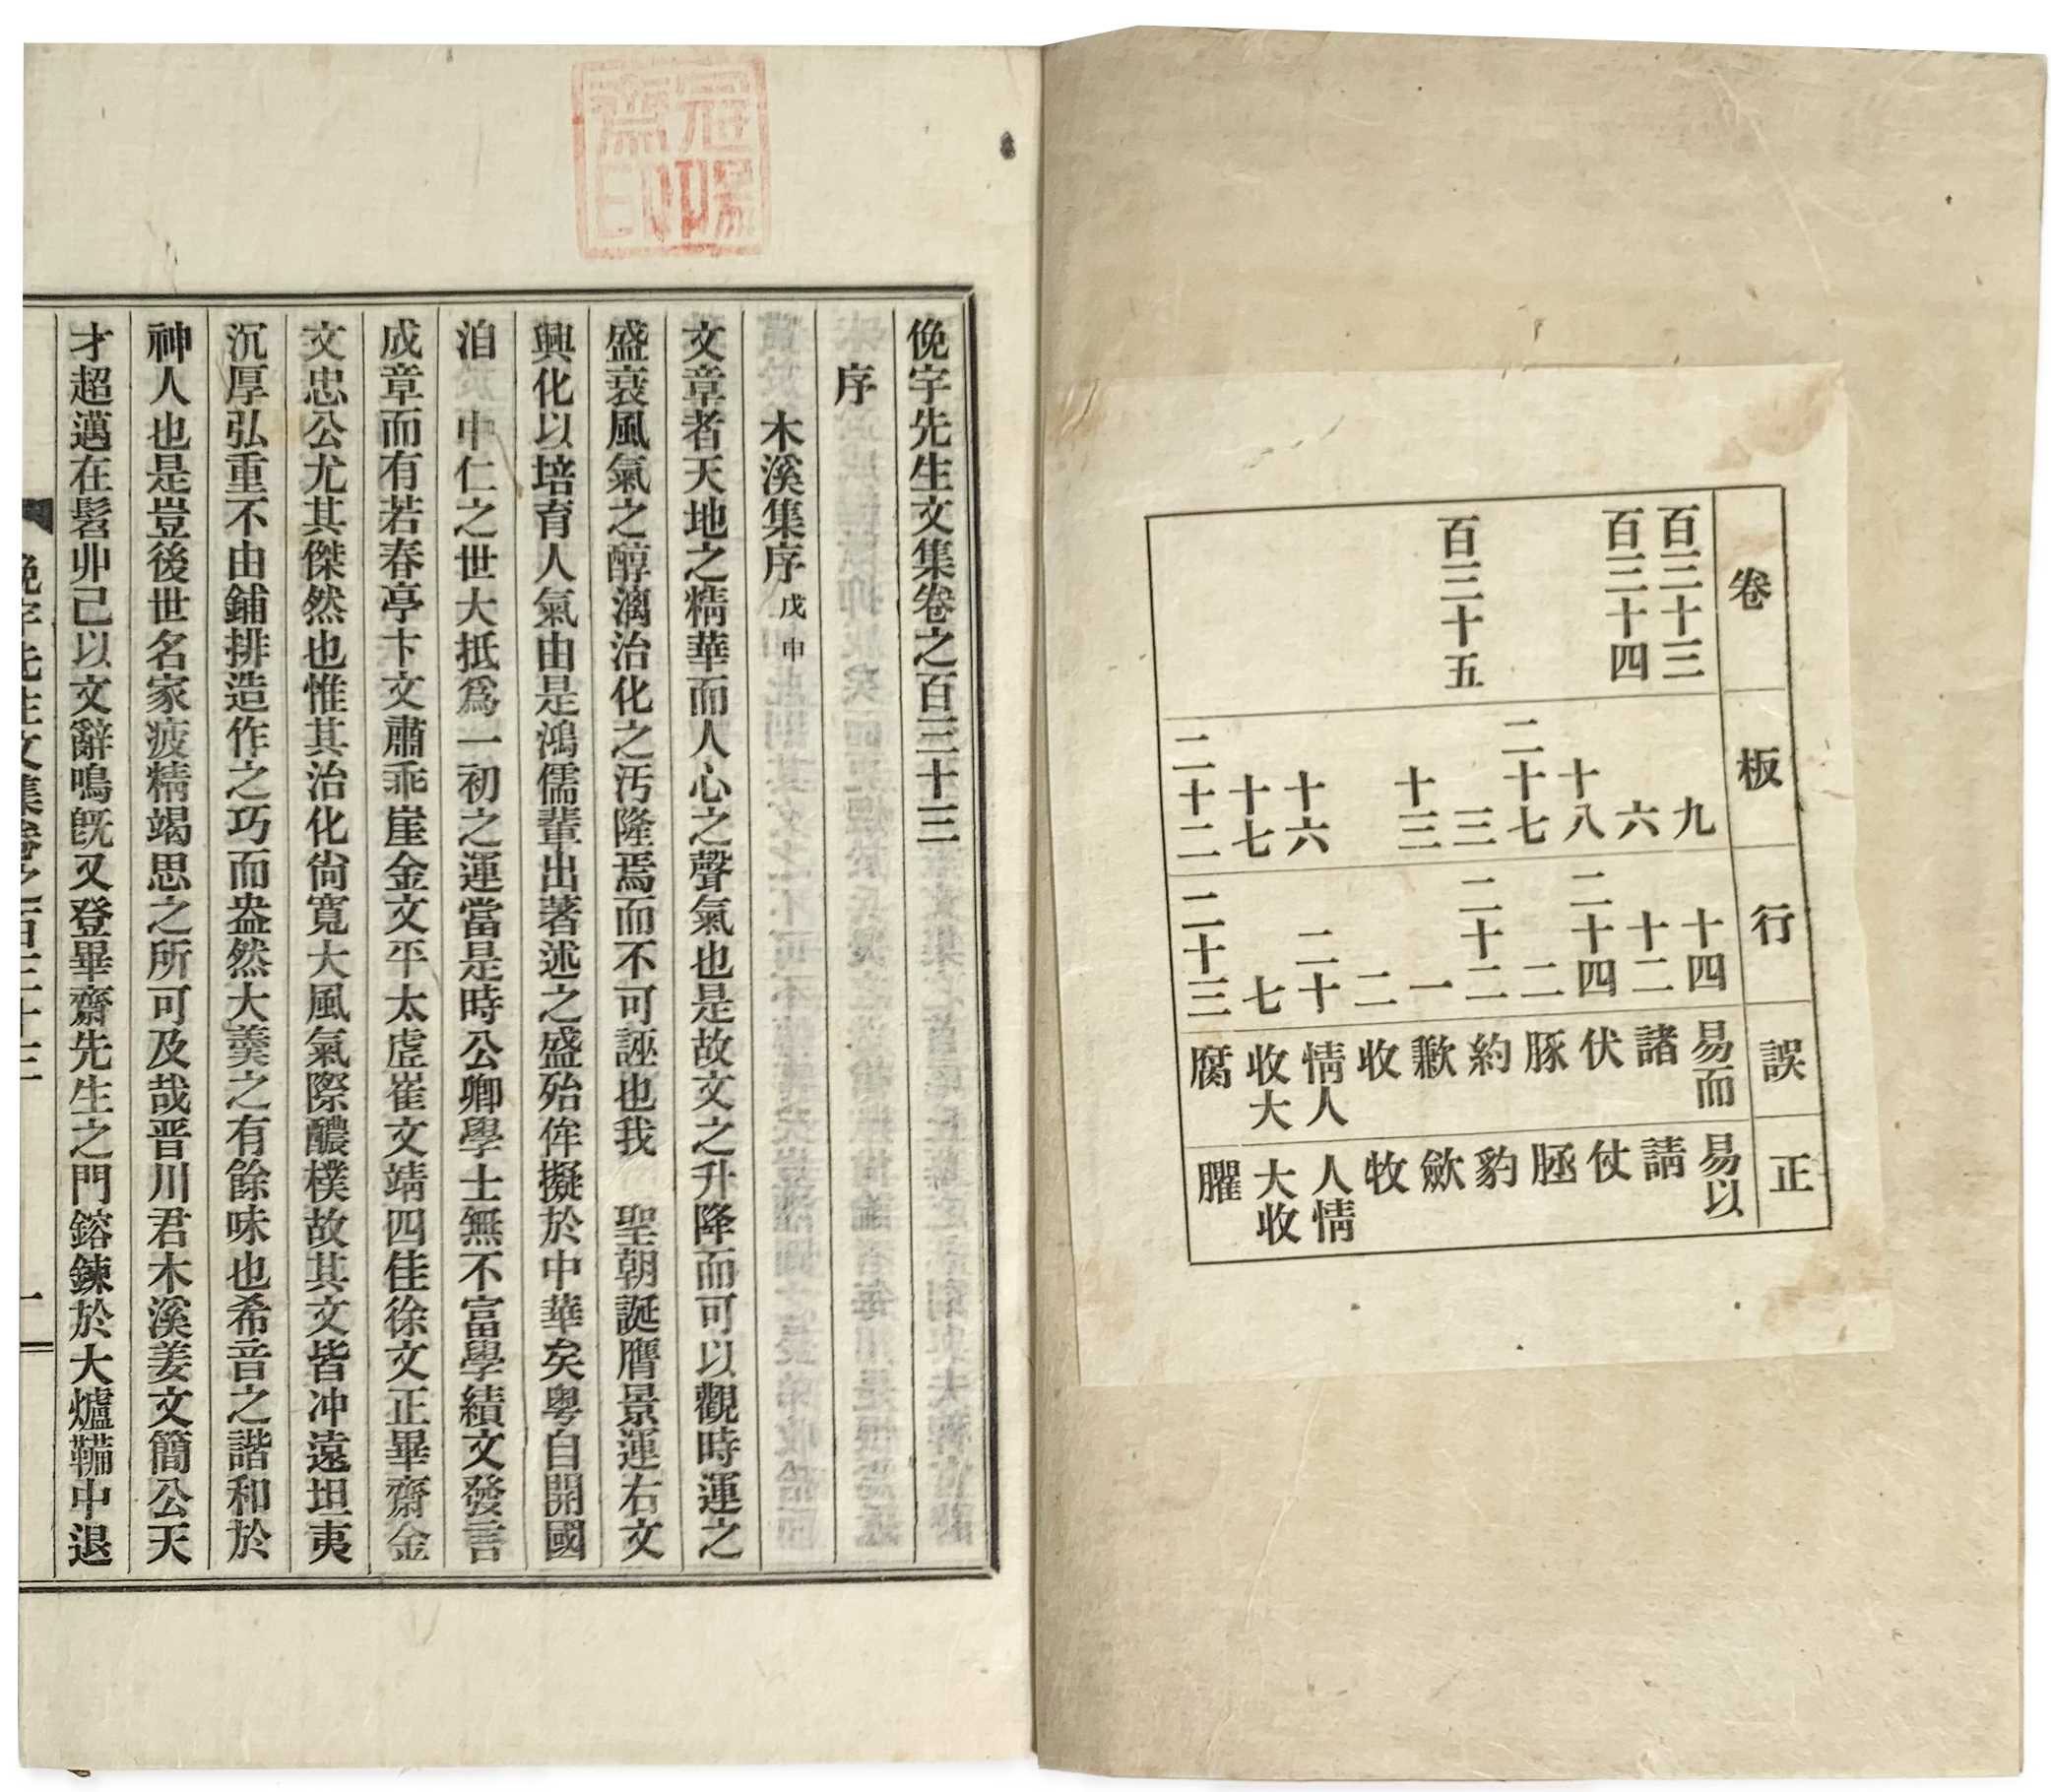 卷 板 行 誤 正
百三十三 九 十四 易而 易以
百三十四 六 十二 諸 請
十八 二十四 伏 仗
二十七 二 豚
百三十五 三 二十二 約 豹
十三 一 歉 歛
二 收 牧
十六 二十 情人 人情
十七 七 收大 大收
二十二 二十三 腐 臞
俛宇先生文集卷之百三十三
序
木溪集序 戊申
文章者天地之精華而人心之聲氣也是故文之升降而可以觀時運之
盛衰風氣之醇漓治化之汚隆焉而不可誣也我 聖朝誕膺景運右文
興化以培育人氣由是鴻儒輩出著述之盛殆侔擬於中華矣粤自開國
洎 中仁之世大抵爲一初之運當是時公卿學士無不富學績文發言
成章而有若春亭卞文肅乖崖金文平太虛崔文靖四佳徐文正畢齋金
文忠公尤其傑然也惟其治化尙寬大風氣際醲樸故其文皆冲遠坦夷
沉厚弘重不由鋪排造作之巧而盎然大羹之有餘味也希音之諧和於
神人也是豈後世名家疲精竭思之所可及哉晋川君木溪姜文簡公天
才超邁在髫丱己以文辭鳴旣又登畢齋先生之門鎔鍊於大爐鞴中退
俛宇先生文集卷之百三十三 一
齋印